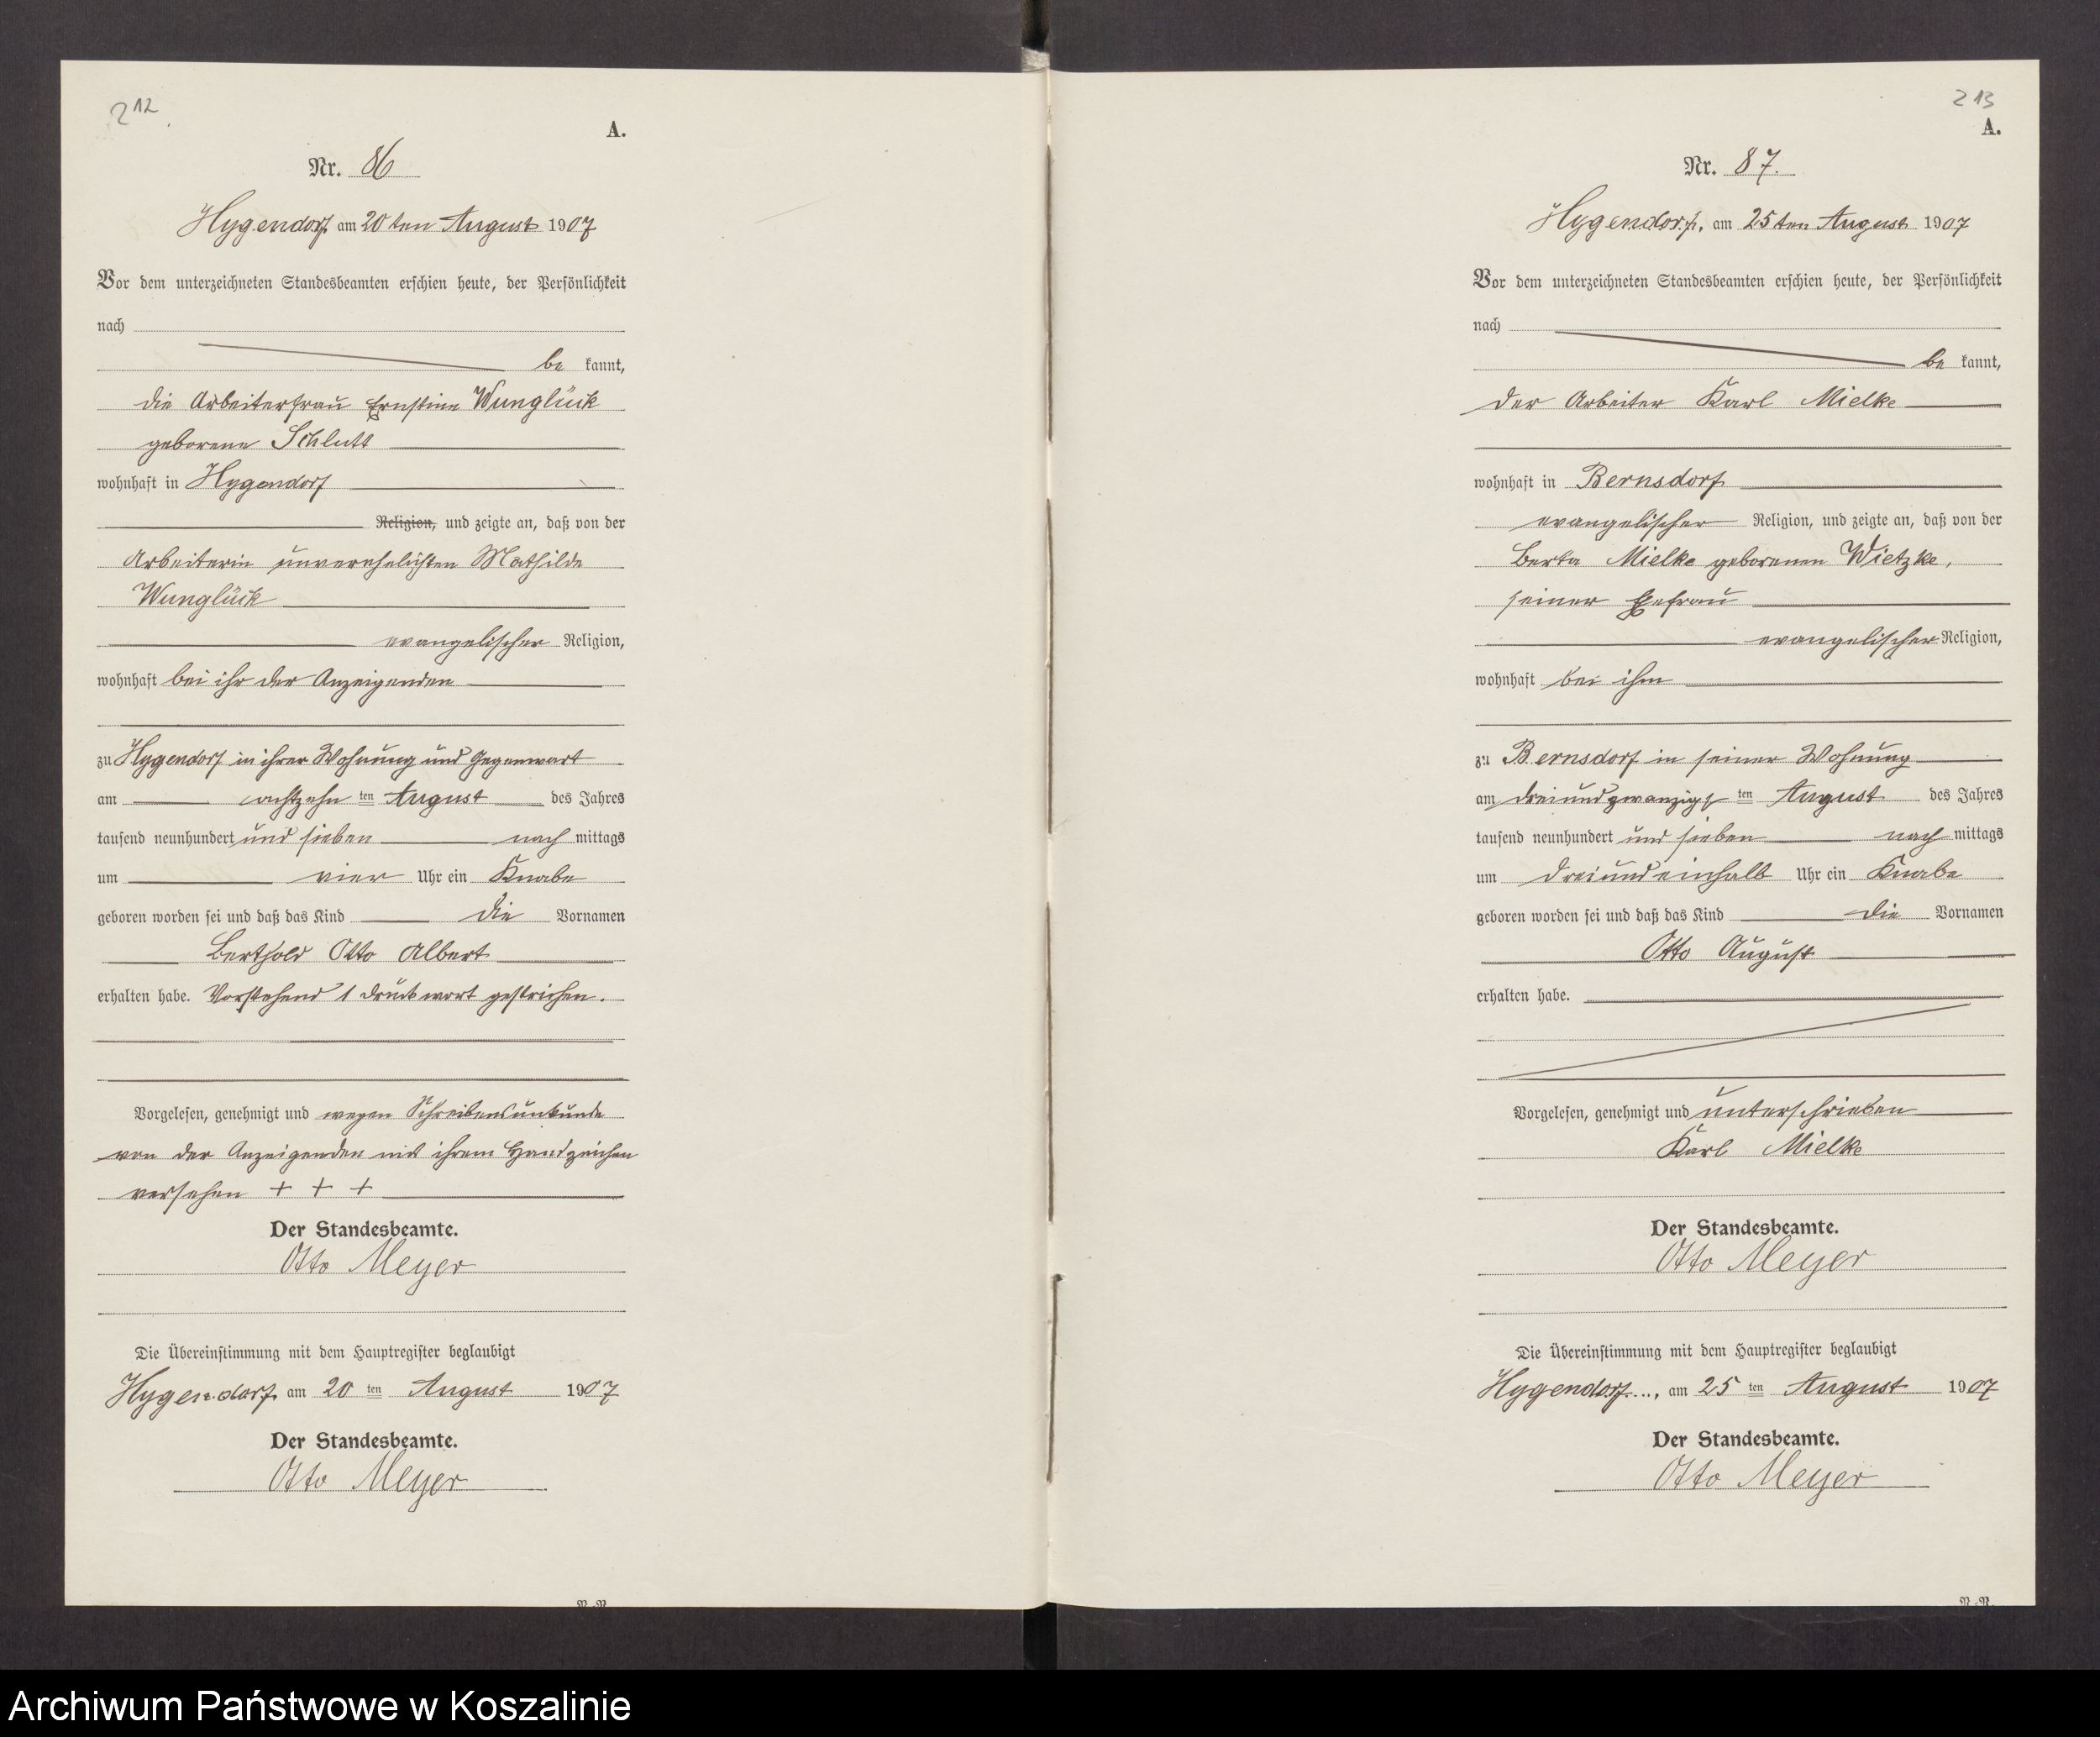 212
A.
Nr. 86
Hygendorf am 20 ten August 1907
Vor dem unterzeichneten Standesbeamten erschien heute, der Persönlichkeit
nach
be kannt,
die Arbeiterfrau Ernstine Wunglück
geborene Schlutt
wohnhaft in Hygendorf
Religion, und zeigte an, daß von der
Arbeiterin unverehelichten Mathilde
Wunglück
evangelischer Religion,
wohnhaft bei ihr der Anzeigenden
zu Hygendorf in ihrer Wohnung und Gegenwart
am achtzehn ten August des Jahres
tausend neunhundert und sieben nach mittags
um vier Uhr ein Knabe
geboren worden sei und daß das Kind die Vornamen
Berthold Otto Albert
erhalten habe. Vorstehend 1 Druckwort gestrichen.
Vorgelesen, genehmigt und wegen Schreibensunkunde
von der Anzeigenden mit ihrem Handzeichen
versehen + + +
Der Standesbeamte.
Otto Meyer
Die Übereinstimmung mit dem Hauptregister beglaubigt
Hygendorf am 20 ten August 1907
Der Standesbeamte.
Otto Meyer
213
A.
Nr. 87.
Hygendorf, am 25 ten August 1907
Vor dem unterzeichneten Standesbeamten erschien heute, der Persönlichkeit
nach
be kannt,
der Arbeiter Karl Mielke
wohnhaft in Bernsdorf
evangelischer Religion, und zeigte an, daß von der
Berta Mielke geborenen Wietzke,
seiner Ehefrau
evangelischer Religion,
wohnhaft bei ihm
zu Bernsdorf in seiner Wohnung
am dreiundzwanzigs ten August des Jahres
tausend neunhundert und sieben nach mittags
um dreiundeinhalb Uhr ein Knabe
geboren worden sei und daß das Kind die Vornamen
Otto August
erhalten habe.
Vorgelesen, genehmigt und unterschrieben
Karl Mielke
Der Standesbeamte.
Otto Meyer
Die Übereinstimmung mit dem Hauptregister beglaubigt
Hygendorf, am 25 ten August 1907
Der Standesbeamte.
Otto Meyer
Archiwum Państwowe w Koszalinie